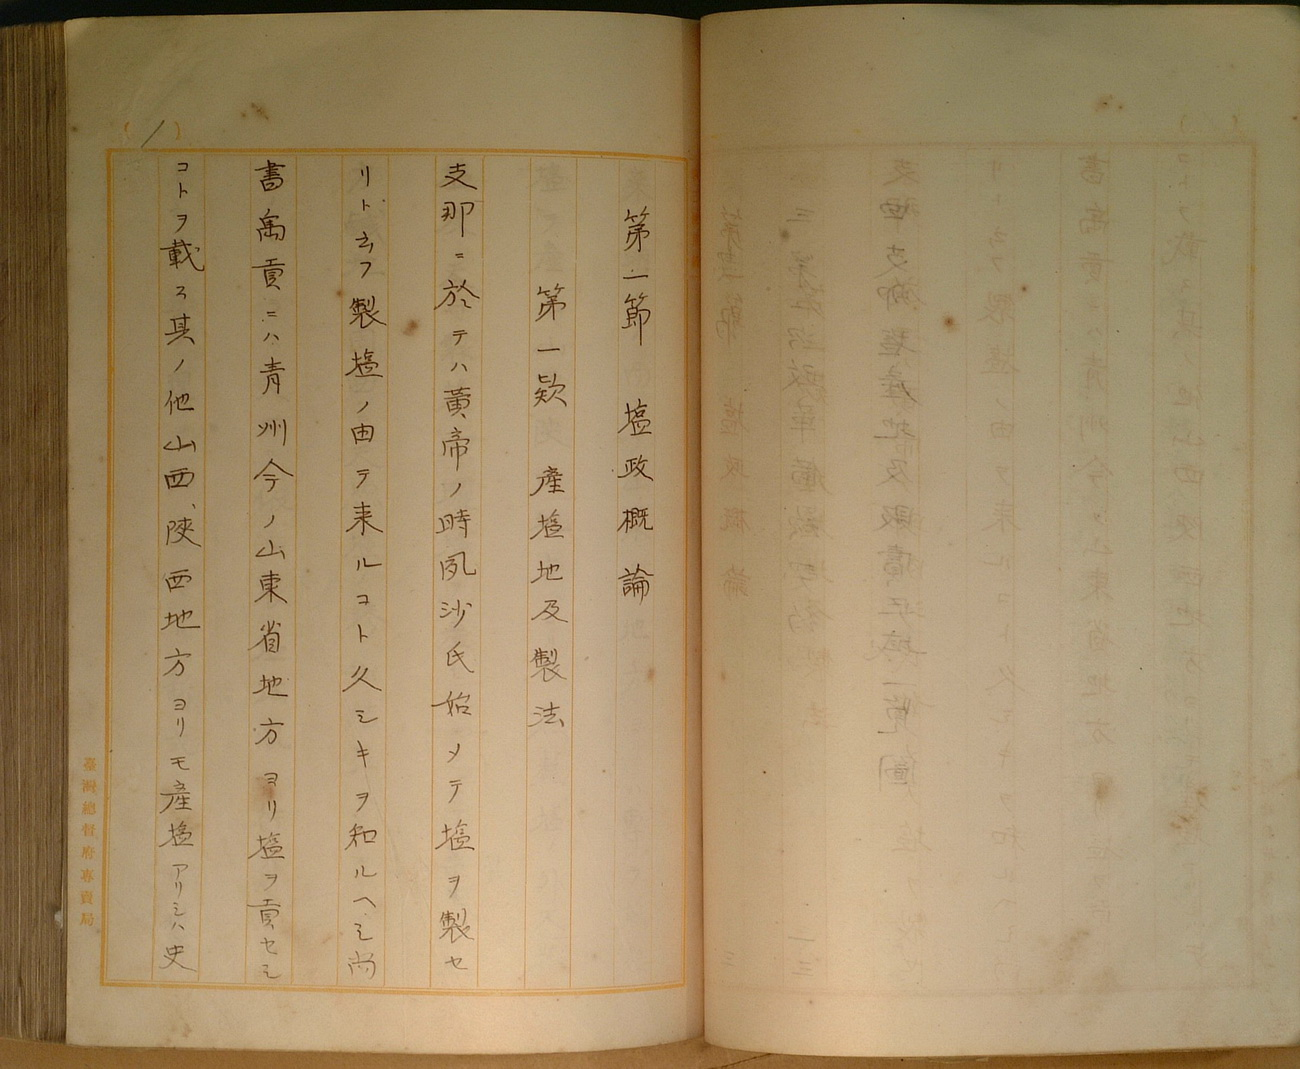 第一節　塩政概論
第一欵　産塩地及製法
支那ニ於テハ黄帝ノ時夙沙氏始メテ塩ヲ製セ
リト云フ製塩ノ由テ来ルコト久シキヲ知ルヘシ尚
書禹貢ニハ青州今ノ山東省地方ヨリ塩ヲ貢セシ
コトヲ載ス其ノ他山西、陝西地方ヨリモ産塩アリシハ史
(1)
臺灣總督府專賣局